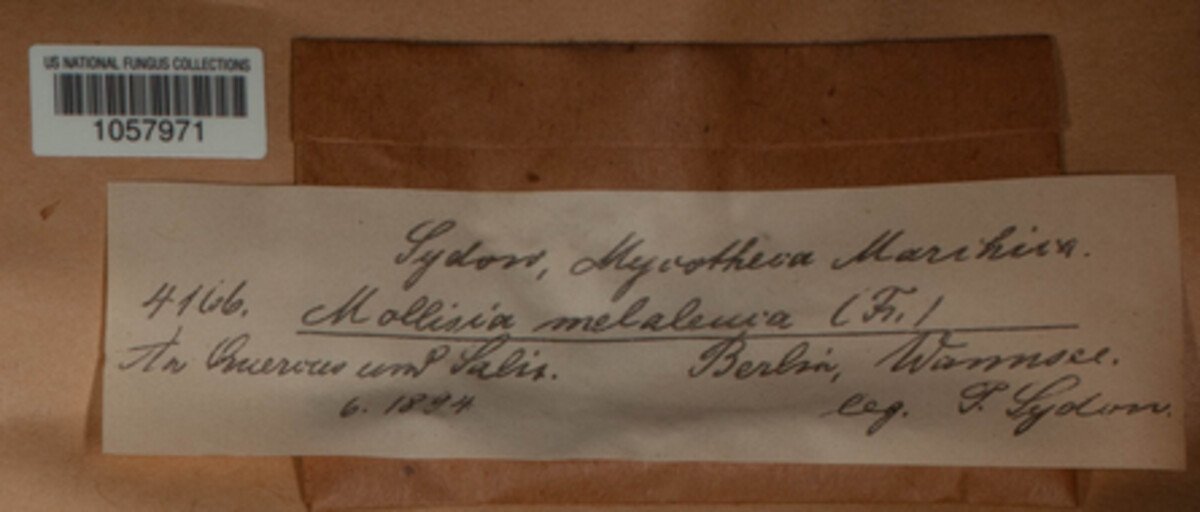 US NATIONAL FUNGUS COLLECTIONS
1057971
Sydow, Mycotheca Marchica.
4166. Mollisia melaleuca (Fr.)
An Quercus und Salix. Berlin, Wannsee.
6. 1894 leg. P. Sydow.